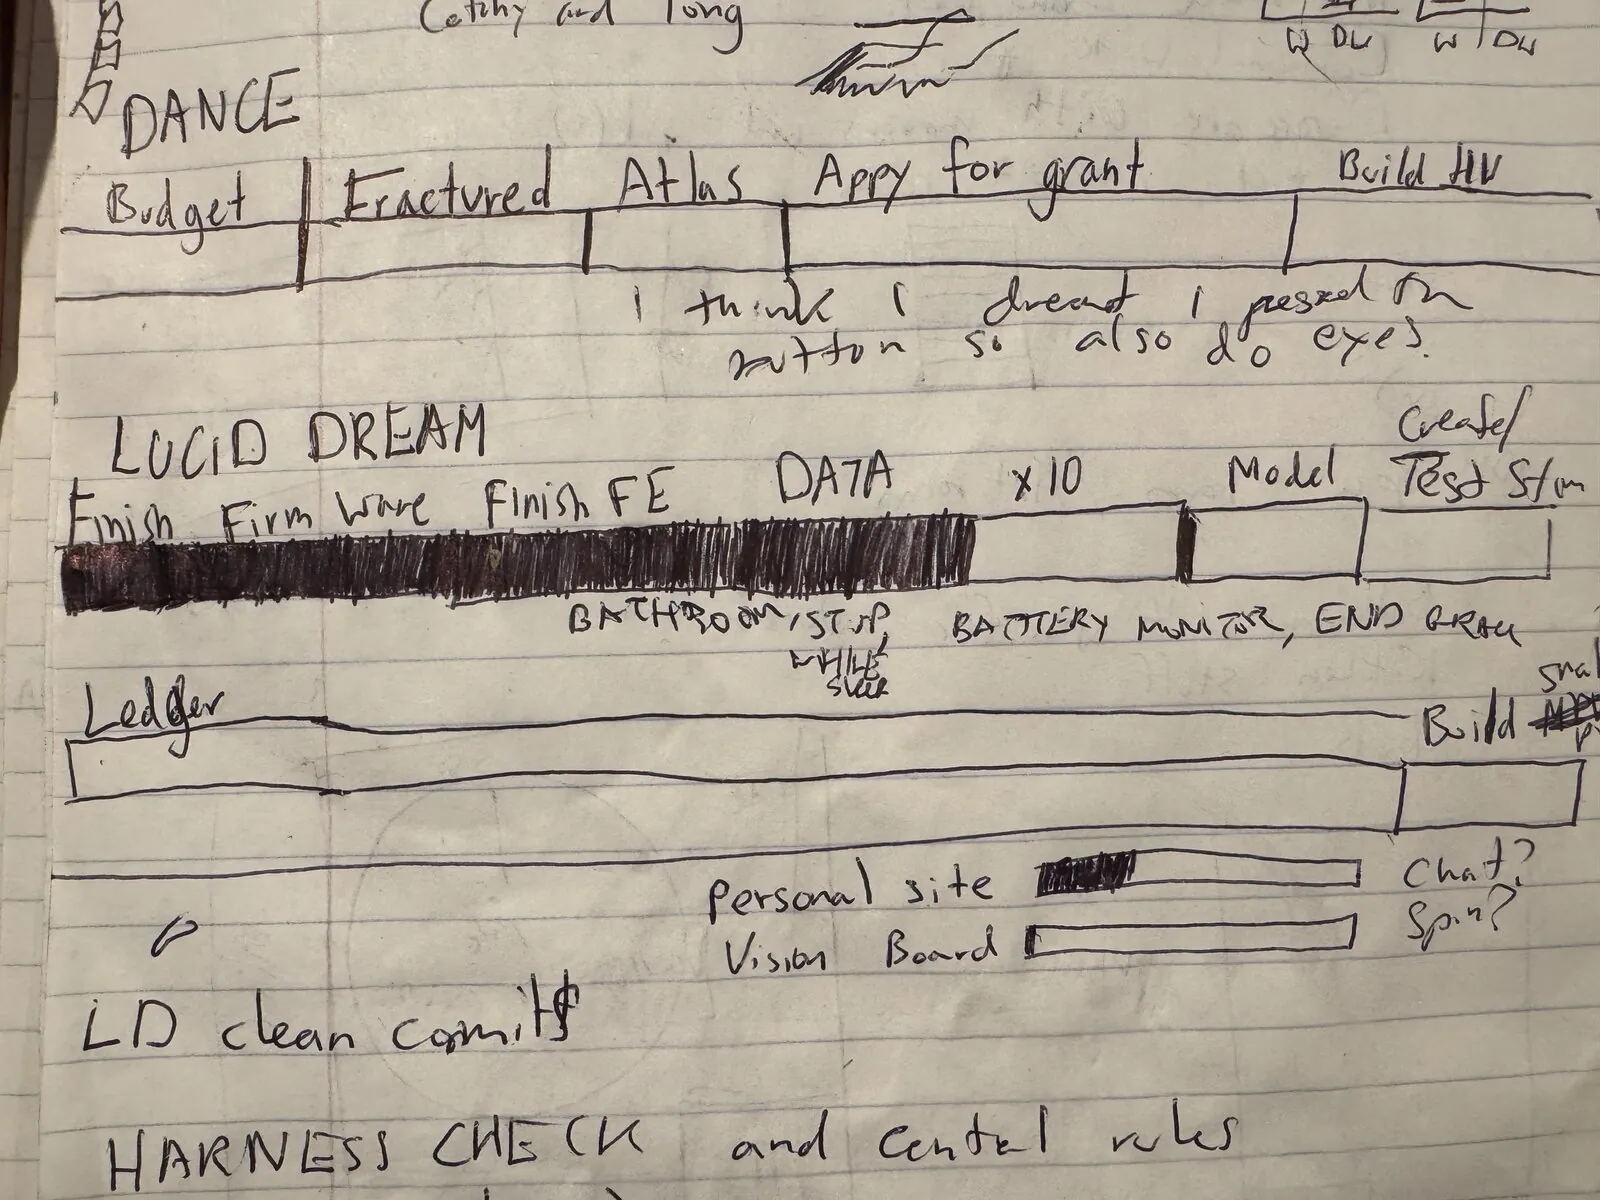 Catchy and long
W DW W DW
DANCE
Budget Fractured Atlas Appy for grant Build HW
I think I dreamt I pressed the
button so also do eyes.
LUCID DREAM
Create/
Finish Firm ware Finish FE DATA x10 Model Test Stim
BATHROOM, STOP, BATTERY MONITOR, END
WHILE
Ledger
Build
Personal site Chat?
Vision Board Spin?
LD clean comits
HARNESS CHECK and central rules